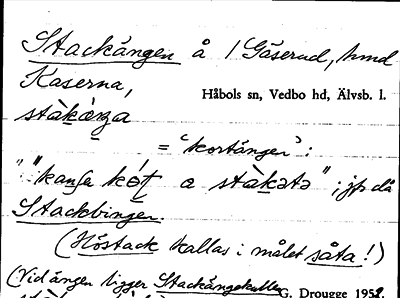 Stackängen å 1 Gäserud, hmd
Kaserna,
Håbols sn, Vedbo hd, Älvsb. l.
stàkæŋa
= 'kortängen':
"kanʃe kǿt a stàkətə"; jfr då
Stackbingen.
(Höstack kallas i målet såta!)
(Vid ängen ligger Stackängskulle
G. Drougge 1952.